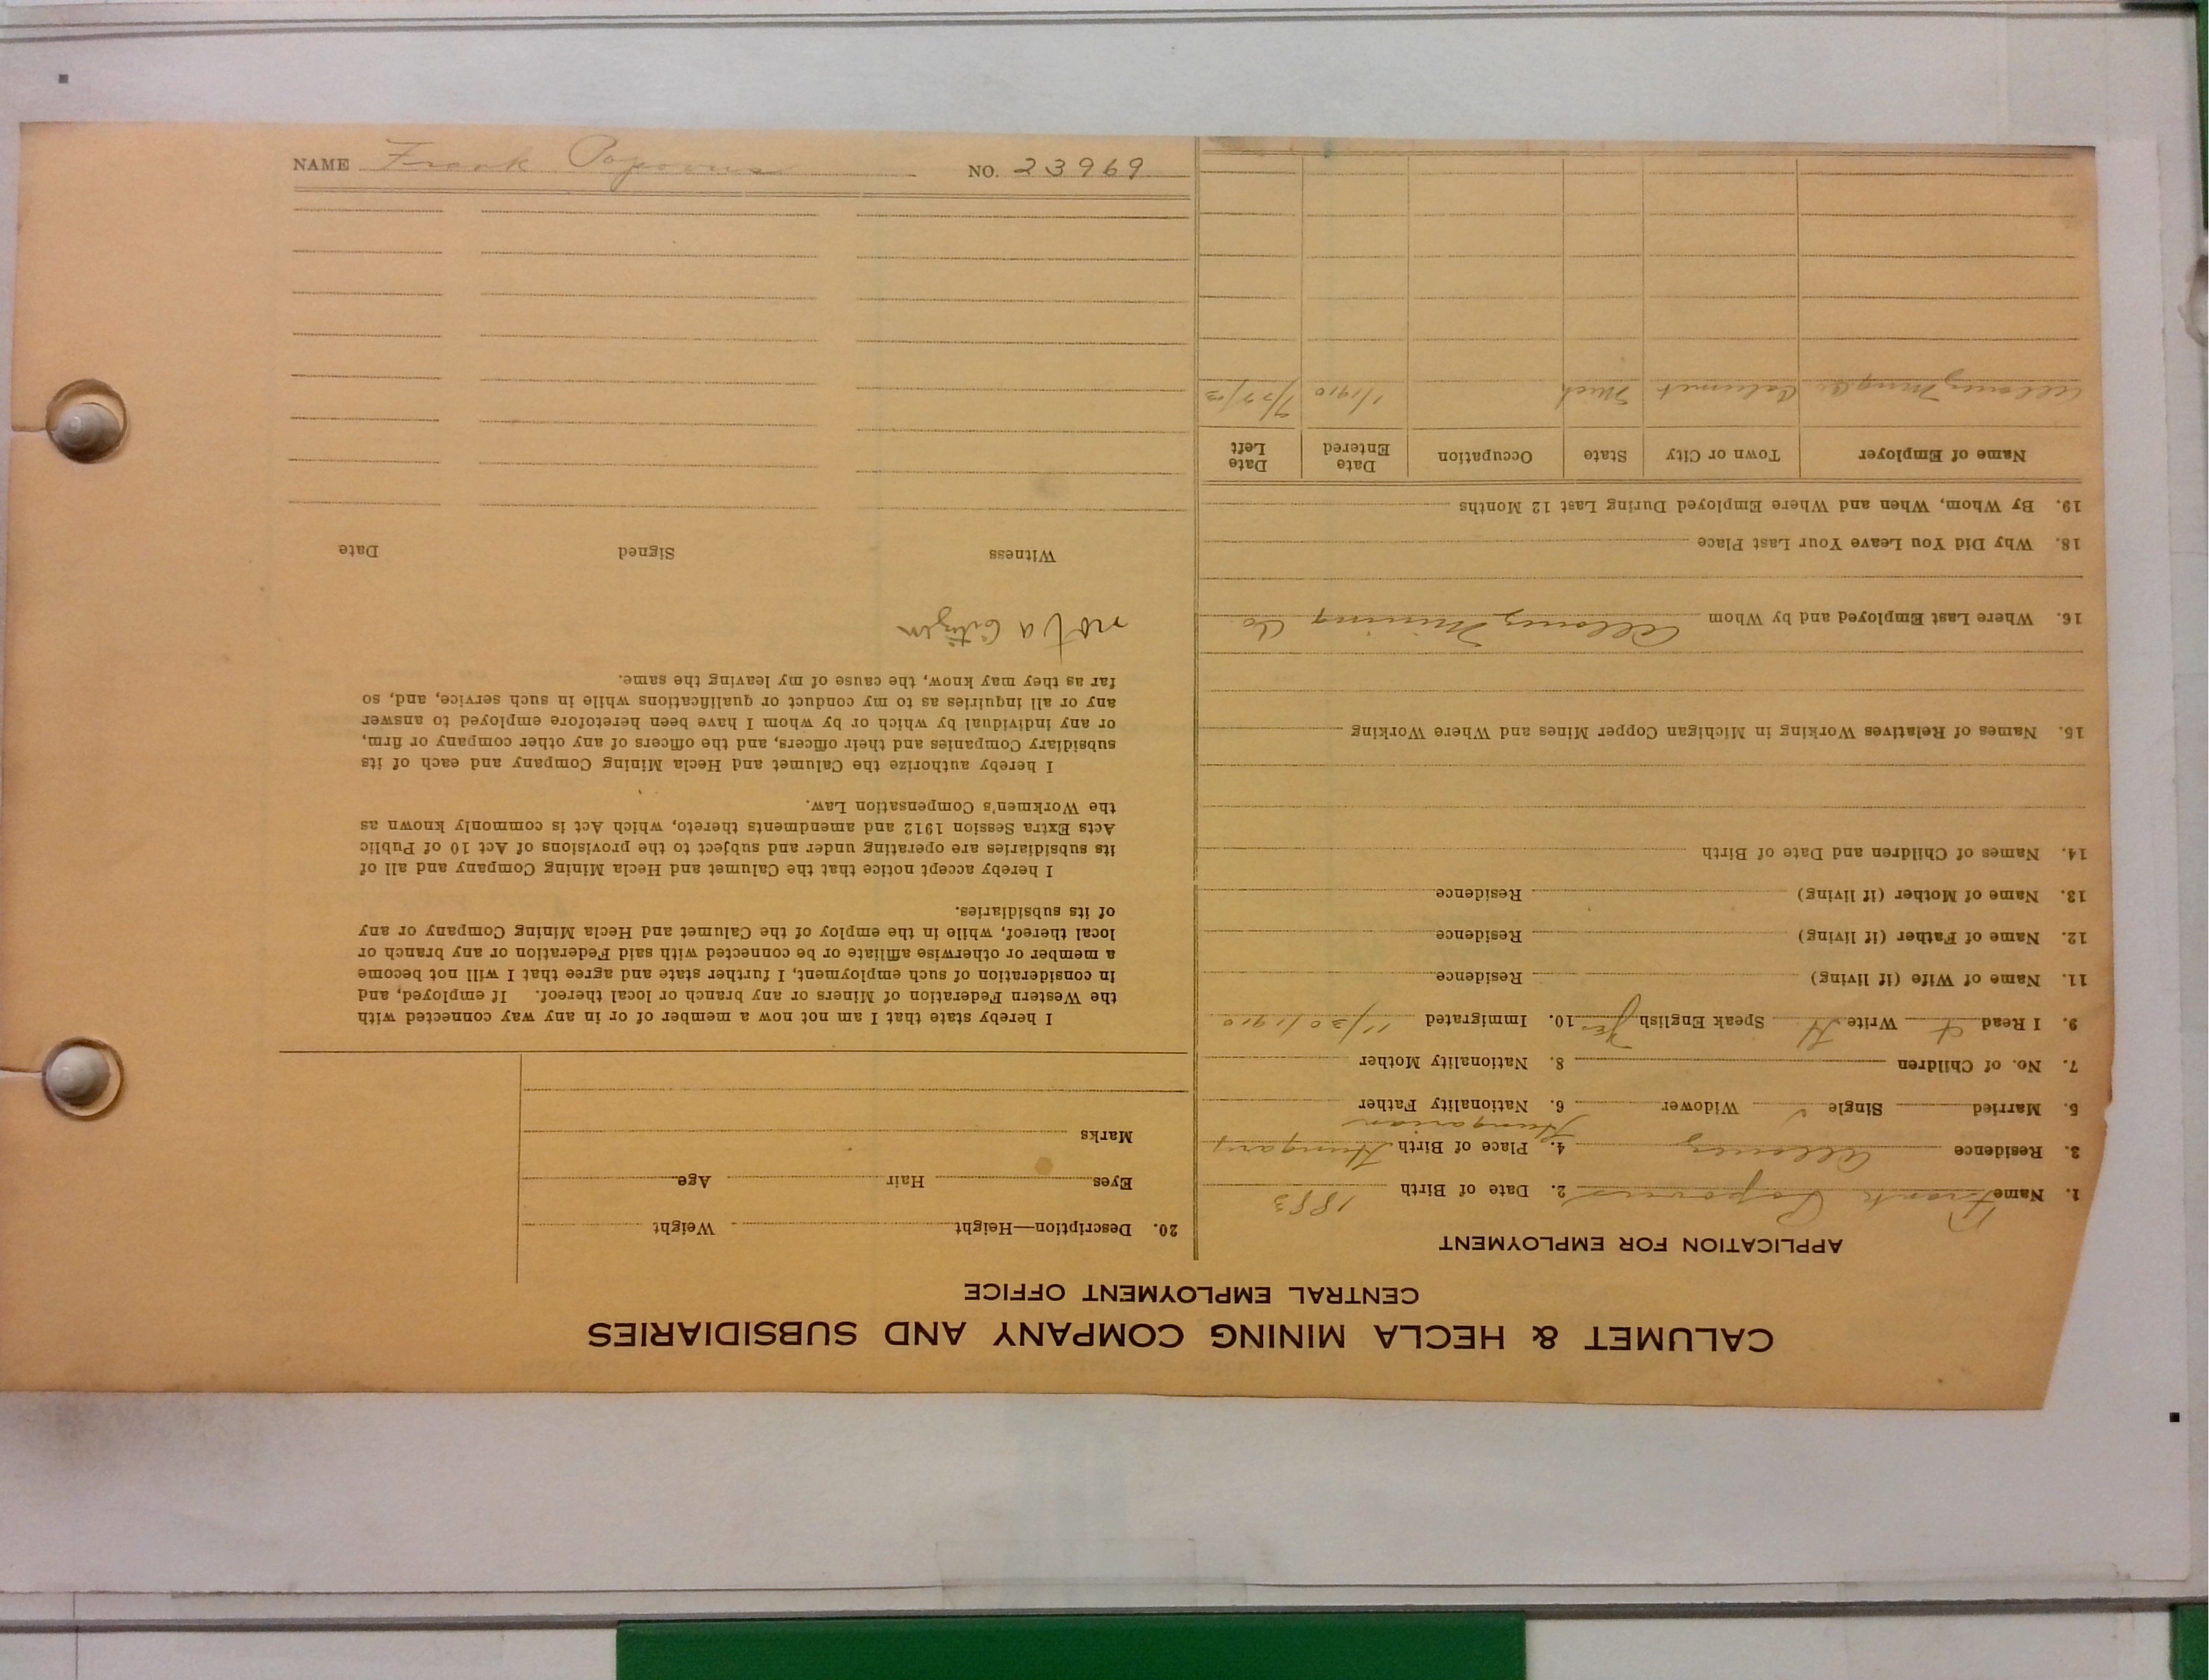 CALUMET & HECLA MINING COMPANY AND SUBSIDIARIES
CENTRAL EMPLOYMENT OFFICE
APPLICATION FOR EMPLOYMENT
1. Name Frank 2. Date of Birth 1883
3. Residence Allouez 4. Place of Birth Hungary
Hungarian
5. Married Single ✓ Widower 6. Nationality Father
7. No. of Children 8. Nationality Mother
9. I Read Write Speak English Yes 10. Immigrated 11/30/1910
11. Name of Wife (if living) Residence
12. Name of Father (if living) Residence
13. Name of Mother (if living) Residence
14. Names of Children and Date of Birth
15. Names of Relatives Working in Michigan Copper Mines and Where Working
16. Where Last Employed and by Whom Allouez Mining Co
18. Why Did You Leave Your Last Place
19. By Whom, When and Where Employed During Last 12 Months
Name of Employer Town or City State Occupation Date Entered Date Left
Allouez Mining Co Calumet Mich 1/1910
20. Description—Height Weight
Eyes Hair Age
Marks
I hereby state that I am not now a member of or in any way connected with
the Western Federation of Miners or any branch or local thereof. If employed, and
in consideration of such employment, I further state and agree that I will not become
a member or otherwise affiliate or be connected with said Federation or any branch or
local thereof, while in the employ of the Calumet and Hecla Mining Company or any
of its subsidiaries.
I hereby accept notice that the Calumet and Hecla Mining Company and all of
its subsidiaries are operating under and subject to the provisions of Act 10 of Public
Acts Extra Session 1912 and amendments thereto, which Act is commonly known as
the Workmen's Compensation Law.
I hereby authorize the Calumet and Hecla Mining Company and each of its
subsidiary Companies and their officers, and the officers of any other company or firm,
or any individual by which or by whom I have been heretofore employed to answer
any or all inquiries as to my conduct or qualifications while in such service, and, so
far as they may know, the cause of my leaving the same.
not a Citizen
Witness Signed Date
NAME Frank NO. 23969